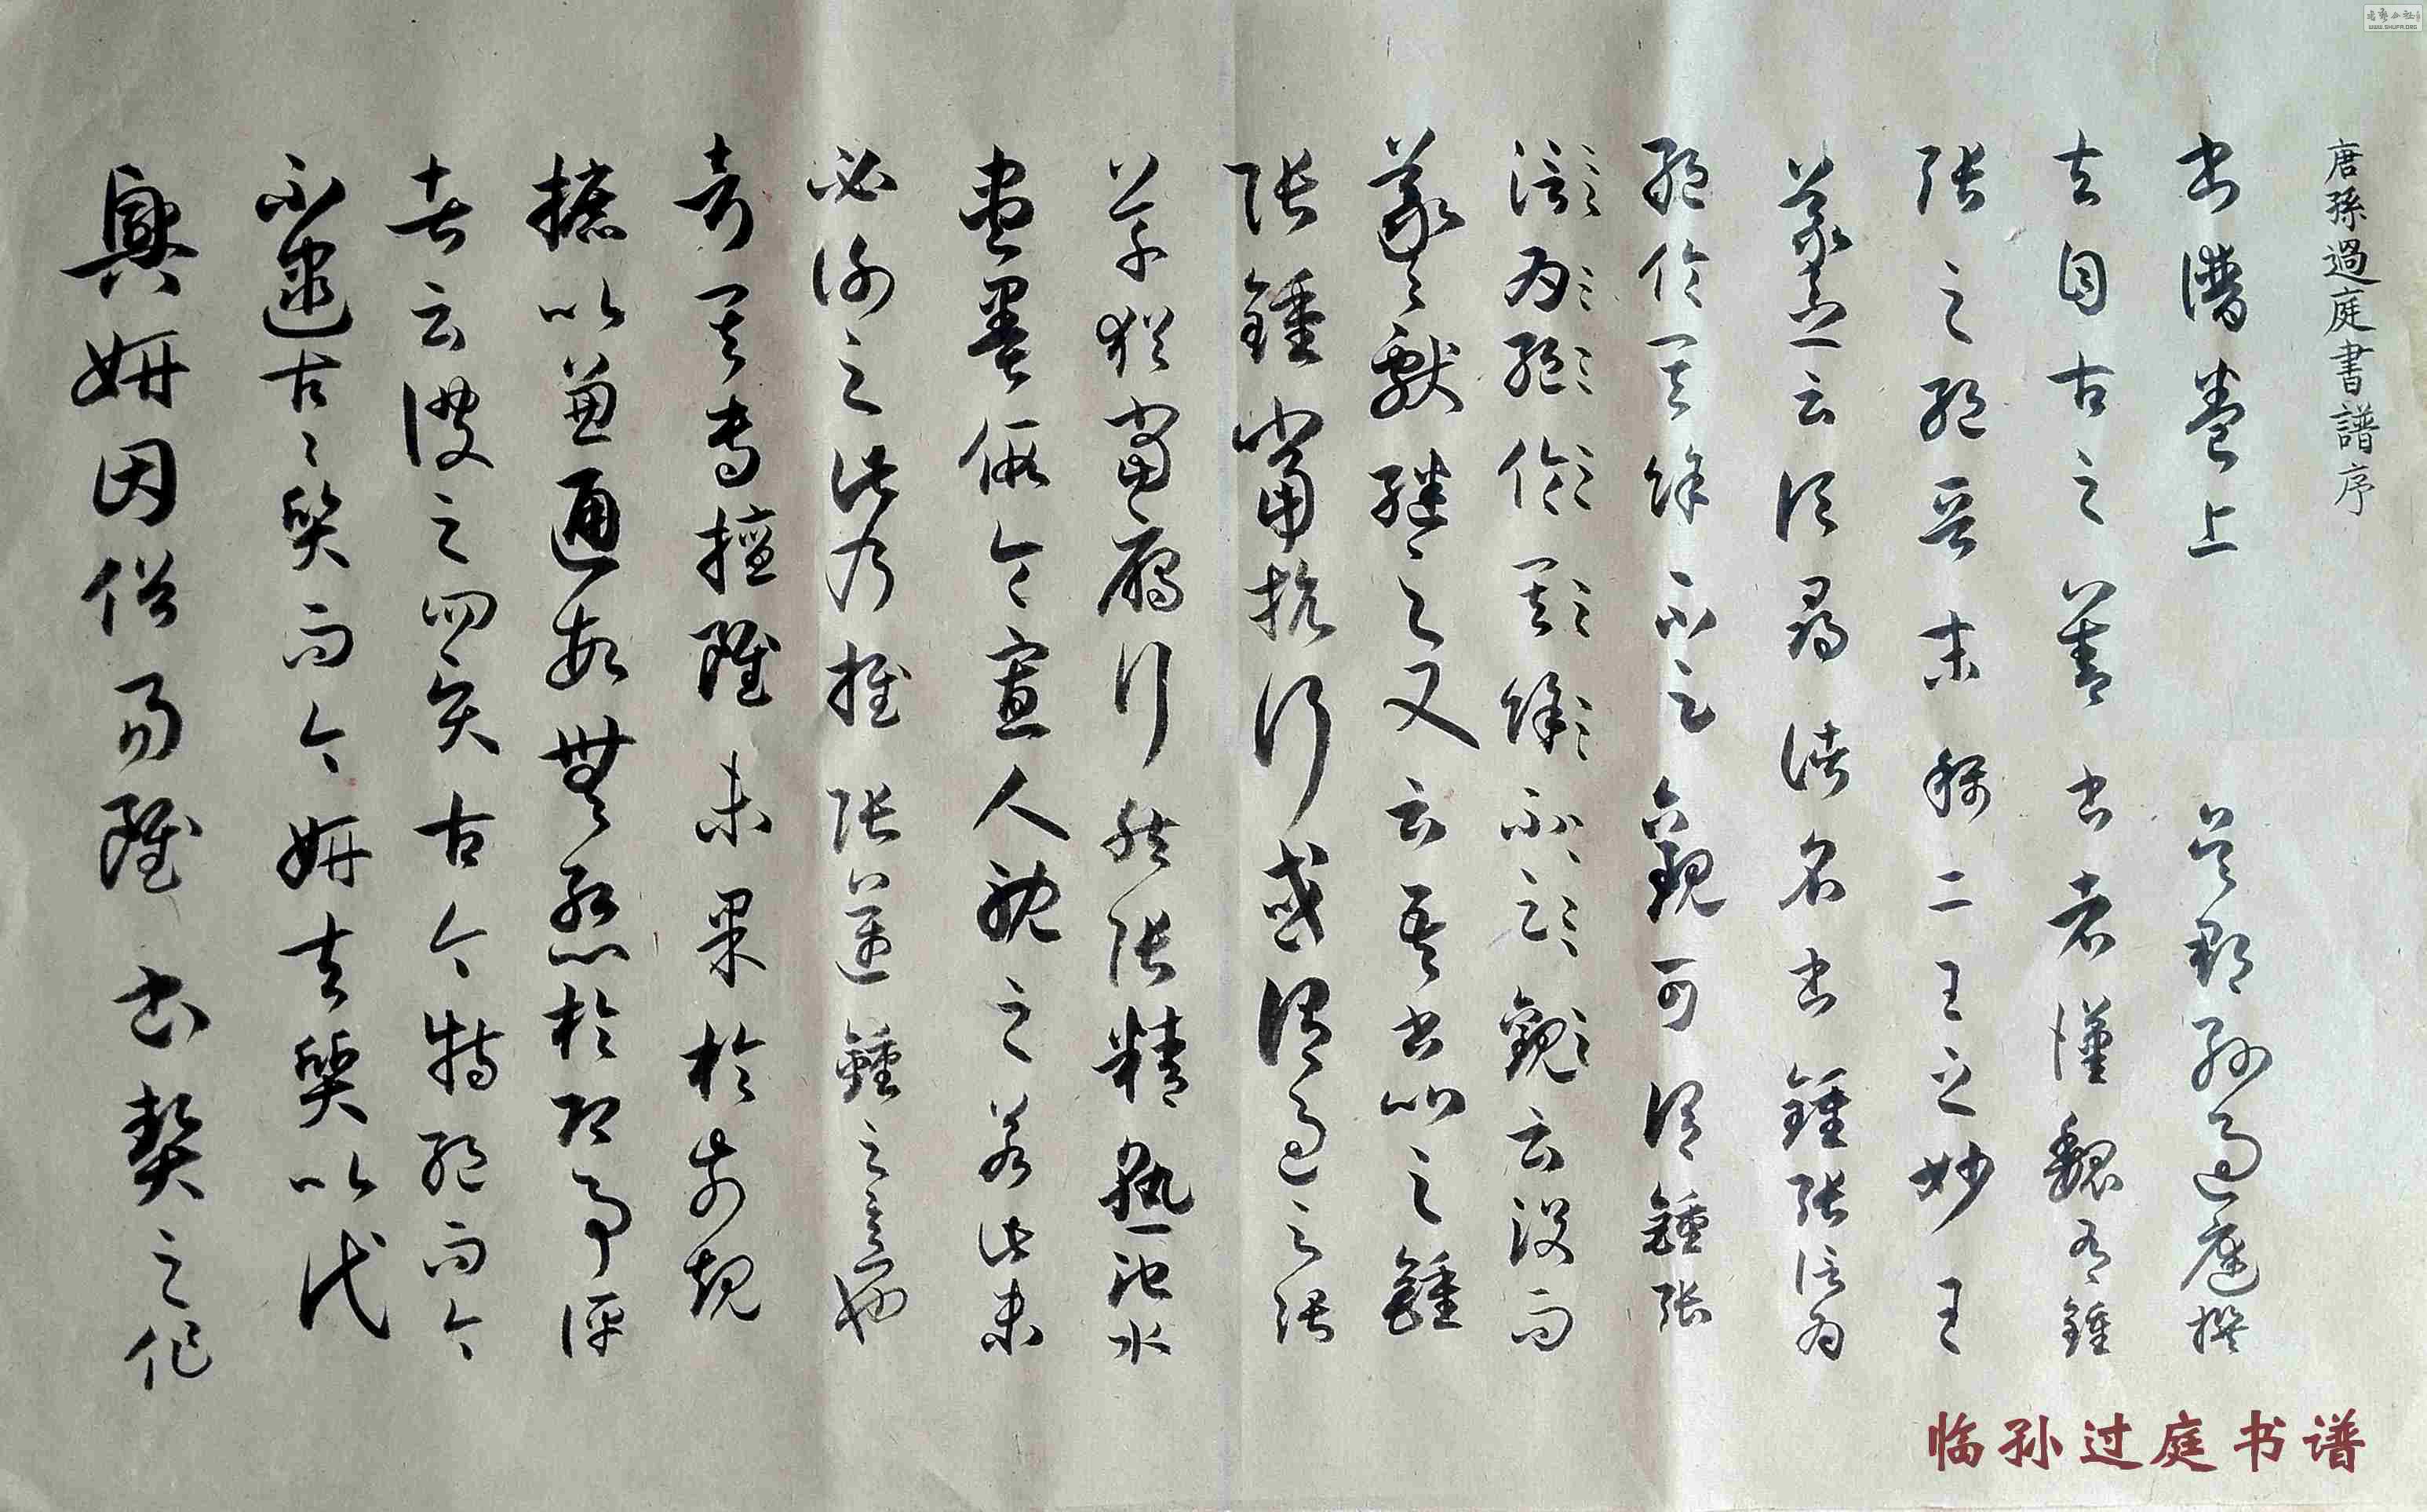 唐孫過庭書譜序
書譜卷上 吳郡孫過庭撰
夫自古之善書者漢魏有鍾
張之絕晉末稱二王之妙王
羲之云頃尋諸名書鍾張信為
絕倫其餘不足觀可謂鍾張
信為絕倫其餘不足觀云沒而
羲獻繼之又云吾書比之鍾
張鍾當抗行或謂過之張
草猶當雁行然張精熟池水
盡墨假令寡人耽之若此未
必謝之此乃推張邁鍾之意也
考其專擅雖未果於前規
摭以兼通故無慚於即事評
者云彼之四賢古今特絕而今
不逮古〻質而今妍夫質以代
興妍因俗易雖書契之作
临孙过庭书谱
WWW.SHUFA.ORG